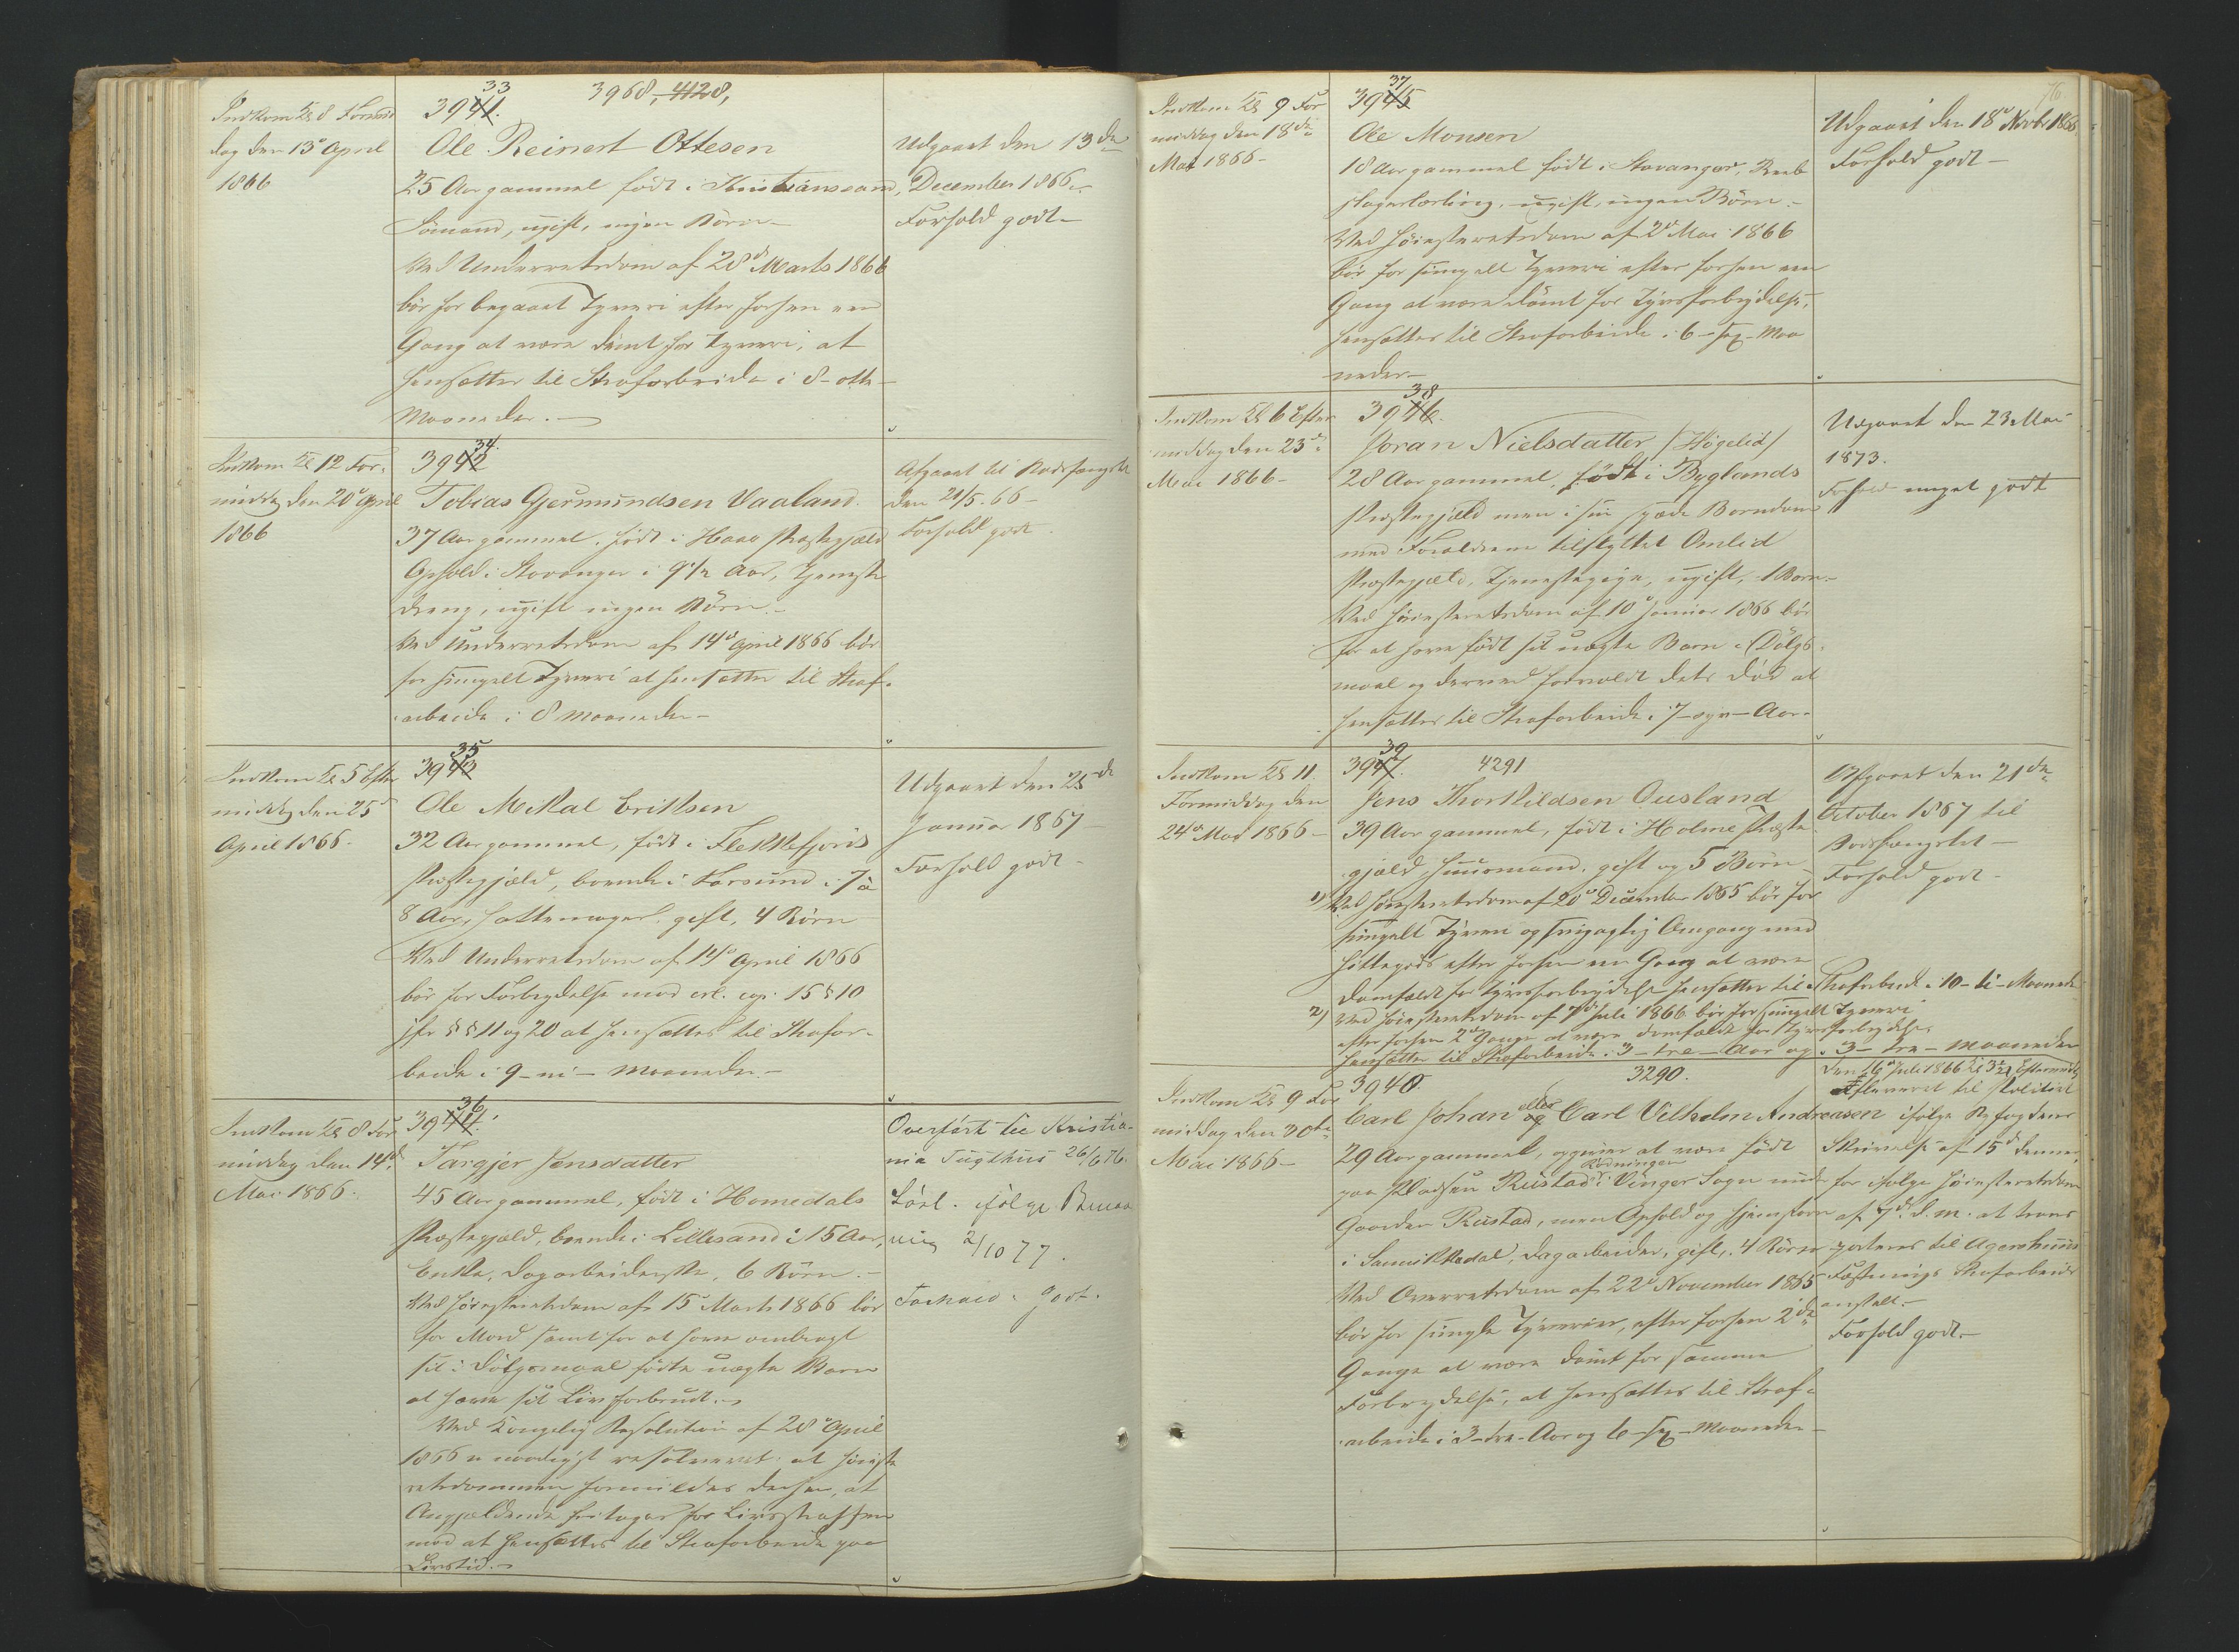 33
3968, 4128,
Indkom Kl 8 Formid
dag den 13de April
1866
3941.
Ole Reinert Ottesen
25 Aar gammel født i Kristianssand,
Sømand, ugift, ingen Børn –
Ved Underretsdom af 28de Marts 1866
bør for begaaet Tyveri efter forhen een
Gang at være dømt for Tyveri, at
hensættes til Strafarbeide i 8 – otte –
Maaneder. –
Udgaaet den 13de
December 1866.
Forhold godt –
Indkom Kl 12 For-
middag den 20de April
1866
34.
3942
Tobias Gjermundsen Vaaland.
37 Aar gammel, født i Haaa Præstegjæld
Ophold i Stavanger i 9 1/2 Aar, Tjeneste
dreng, ugift ingen Børn. –
Ved Underretsdom af 14de April 1866 bør
for simpelt Tyveri at hensættes til Straf-
arbeide i 8 Maaneder –
Afgaaet til Bodsfængslet
den 21/5. 66 –
Forhold godt.
Indkom Kl 5 Efter
middag den 25de
April 1866.
35
3943
Ole Mikal Eriksen
32 Aar gammel, født i Flekkefjords
Præstegjæld, boende i Farsund i 7 à
8 Aar, Hattemager, gift, 4 Børn
Ved Underretsdom af 14de April 1866
bør for Forbrydelse mod crl. cap. 15 § 10
jfr §§ 11 og 20 at hensættes til Strafar-
beide i 9 – ni – Maaneder. –
Udgaaet den 25de
Januar 1867 –
Forhold godt –
Indkom Kl 8 For
middag den 14de
Mai 1866.
36
3944.
Targjer Jensdatter
45 Aar gammel, født i Homedals
Præstegjæld, boende i Lillesand i 15 Aar,
Enke, Dagarbeiderske, 6 Børn. –
Ved Høiesteretsdom af 15de Marts 1866 bør
for Mord samt for at have ombragt
sit i Dølgsmaal fødte uægte Barn
at have sit Liv forbrudt. –
Ved Kongelig Resolution af 28de April
1866 er naadigst resolveret: at Høieste
retsdommen formildes derhen, at
Angjældende fritages for Livsstraffen
mod at hensættes til Strafarbeide paa
Livstid. –
Overført til Kristia-
nia Tugthus 26/6 76.
Løsl. ifølge Benaad
ning 2/10 77.
Forhold: Godt.
76
Indkom Kl 9 For
middag den 18de
Mai 1866 –
37
3945
Ole Monsen
18 Aar gammel født i Stavanger, Reeb
slagerlærling, ugift, ingen Børn. –
Ved Høiesteretsdom af 2de Mai 1866
bør for simpelt Tyveri efter forhen een
Gang at være dømt for Tyvsforbrydelse,
hensættes til Strafarbeide i 6 – sex – Maa
neder –
Udgaaet den 18de Novbr 1866.
Forhold godt –
Indkom Kl 6 Efter
middag den 23de
Mai 1866 –
38
3946.
Joran Nielsdatter /Høgelid/
28 Aar gammel, født i Byglands
Præstegjæld men i sin spæde Barndom
med Forældrene tilflyttet Omlid
Præstegjæld, Tjenestepige, ugift, 1 Barn –
Ved Høiesteretsdom af 10de Januar 1866 bør
for at have født sit uægte Barn i Dølgs-
maal og derved forvoldt dets Død at
hensættes til Strafarbeide i 7 – syv – Aar –
Udgaaet den 23 Mai
1873.
Forhold meget godt
Indkom Kl 11.
Formiddag den
24de Mai 1866 –
39
3947. 4291
Jens Thorkildsen Ousland
39 Aar gammel, født i Holme Præste
gjæld, Huusmand, gift og 5 Børn
1) Ved Høiesteretsdom af 20de December 1865 bør for
simpelt Tyveri og svigagtig Omgang med
Hittegods efter forhen een Gang at være
domfældt for Tyvsforbrydelse hensættes til Strafarbeide i 10 – ti – Maaneder
2) Ved Høiesteretsdom af 7de Juli 1866 bør for simpelt Tyveri
efter forhen 2de Gange at være domfældt for Tyvsforbrydelse
hensættes til Strafarbeide i 3 – tre – Aar og 3 – tre – Maaneder
Afgaaet den 21de
October 1867 til
Bodsfængslet –
Forhold godt –
Indkom Kl 9 For
middag den 30te
Mai 1866 –
3940. 3290.
Carl Johan eller og Carl Vilhelm Andreasen
29 Aar gammel, opgiver at være født
paa Pladsen Rustad Rødningen i Vinger Sogn under
Gaarden Rustad, men Ophold og Hjemstavn
i Sannikedal, Dagarbeider, gift, 4 Børn
Ved Overretsdom af 22de November 1865
bør for simple Tyverier, efter forhen 2de
Gange at være dømt for samme
Forbrydelse, at hensættes til Straf-
arbeide i 3 – tre – Aar og 6 – sex – Maaneder –
Den 16de Juli 1866 Kl 3 1/2 Eftermiddag
afleveret til Politiet
ifølge Byfogdens
Skrivelse af 15de dennes,
for ifølge Høiesteretsdom
af 7de d. m. at trans
porteres til Agershuus
Fæstnings Strafarbeids
anstalt. –
Forhold godt –